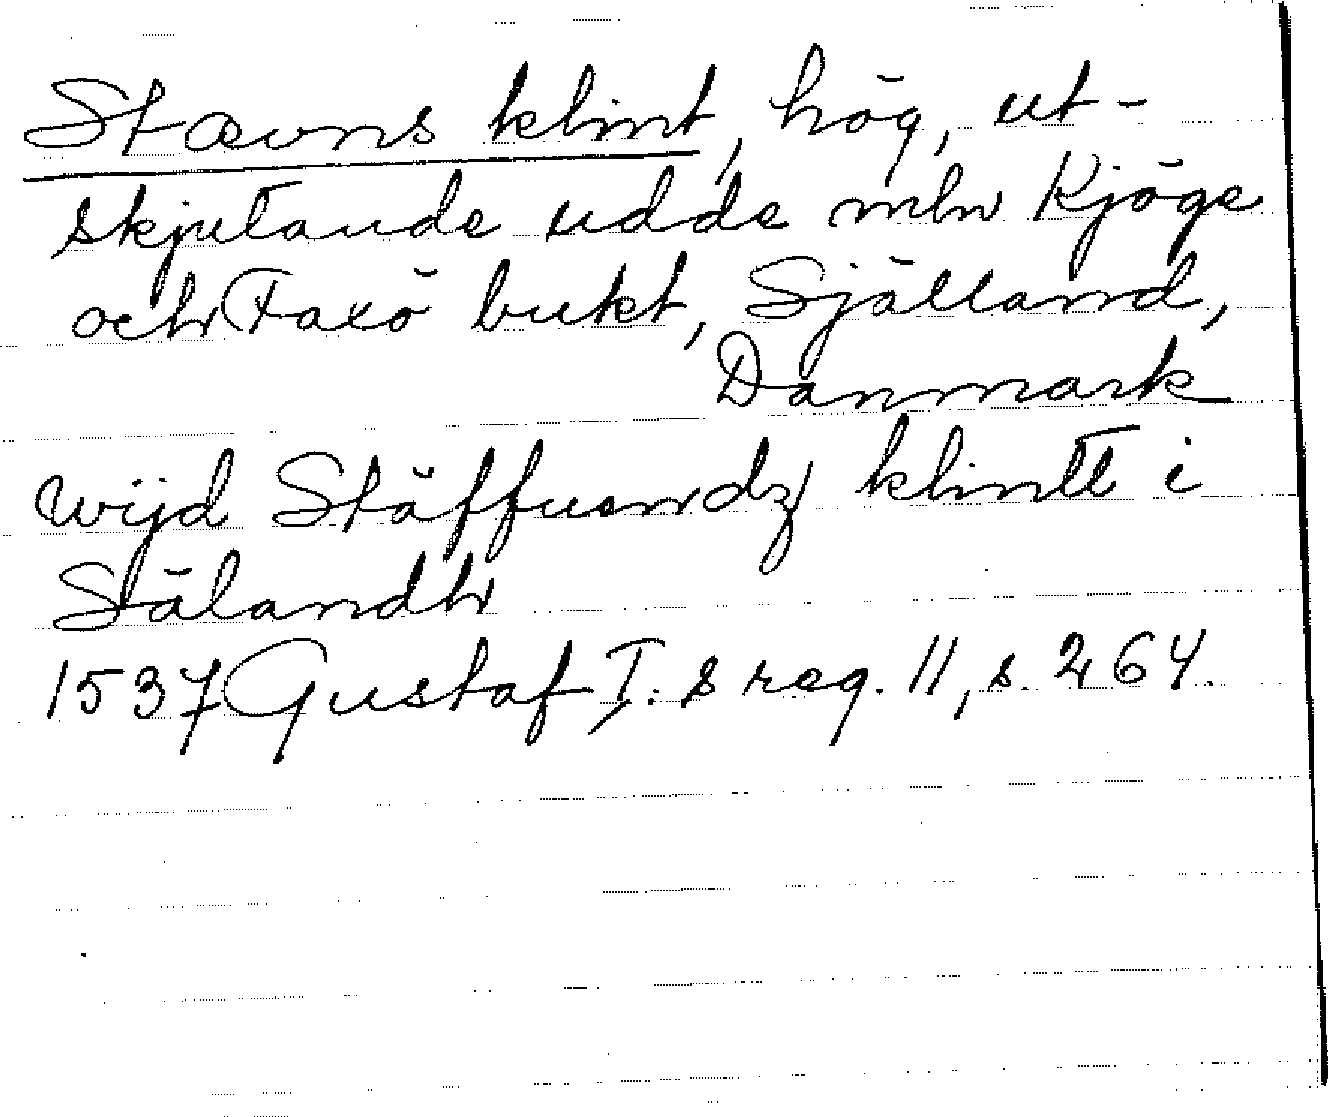 Stævns klint, hög, ut-
skjutande udde mln Kjöge
och Faxö bukt, Själland,
Danmark
wijd Stäffuendz klintt i
Säland
1537 Gustaf I:s reg. 11, s 264.